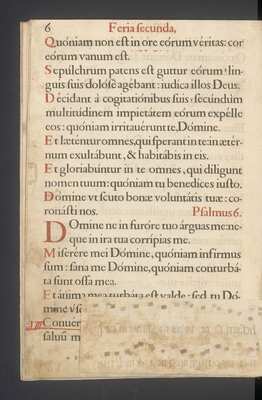 6 Feria secunda,
Quóniam non est in ore eórum véritas: cor
eórum vanum est.
Sepulchrum patens est guttur eórum: lin-
guis suis dolóse agébant: iudica illos Deus.
Décidant à cogitatiónibus suis: secúndùm
multitúdinem impietátem eórum expélle
eos: quóniam irritauérunt te, Dómine.
Et læténtur omnes, qui sperant in te: in æter-
num exultábunt, & habitábis in eis.
Et gloriabúntur in te omnes, qui diligunt
nomen tuum: quóniam tu benedíces iusto.
Dómine vt scuto bonæ voluntátis tuæ: co-
ronásti nos. Psalmus 6.
DOmine ne in furóre tuo árguas me: ne-
que in ira tua corrípias me.
Miserére mei Dómine, quóniam infírmus
sum: sana me Dómine, quóniam conturbá-
ta sunt ossa mea.
Et ánima mea turbáta est valde: sed tu Dó-
mine
Conuer
saluũ m